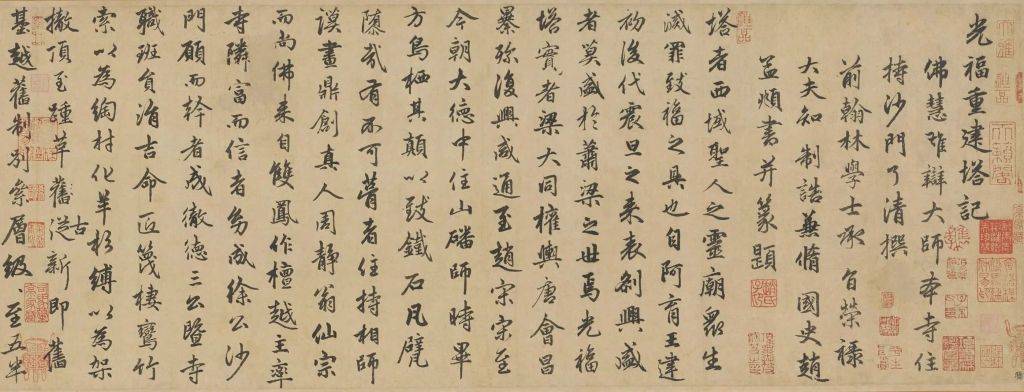 光福重建塔記
佛慧雄辯大師本寺住
持沙門了清撰
前翰林學士承旨榮祿
大夫知制誥兼脩國史趙
孟頫書并篆題
塔者西域聖人之靈廟眾生
滅罪致福之具也自阿育王建
初後代震旦之来表剎興盛
者莫盛於蕭梁之世焉光福
塔寔者梁大同權輿唐會昌
暴殄復興咸通至趙宋宋至
今朝大德中住山磻師時畢
方鳥栖其顛以致鐵石凡甓
隳哉有不可瞢者住持相師
謨畫鼎創真人周靜翁仙宗
而尚佛来自雙鳳作檀越主率
寺隣富而信者成徐公沙
門願而幹者成徹德三公暨寺
職班貟涓吉命匠篾棲鸞竹
索以為綯村化羊杉縛以為架
撤頂至踵革舊從古新即舊
基越舊制別察層級、至五半